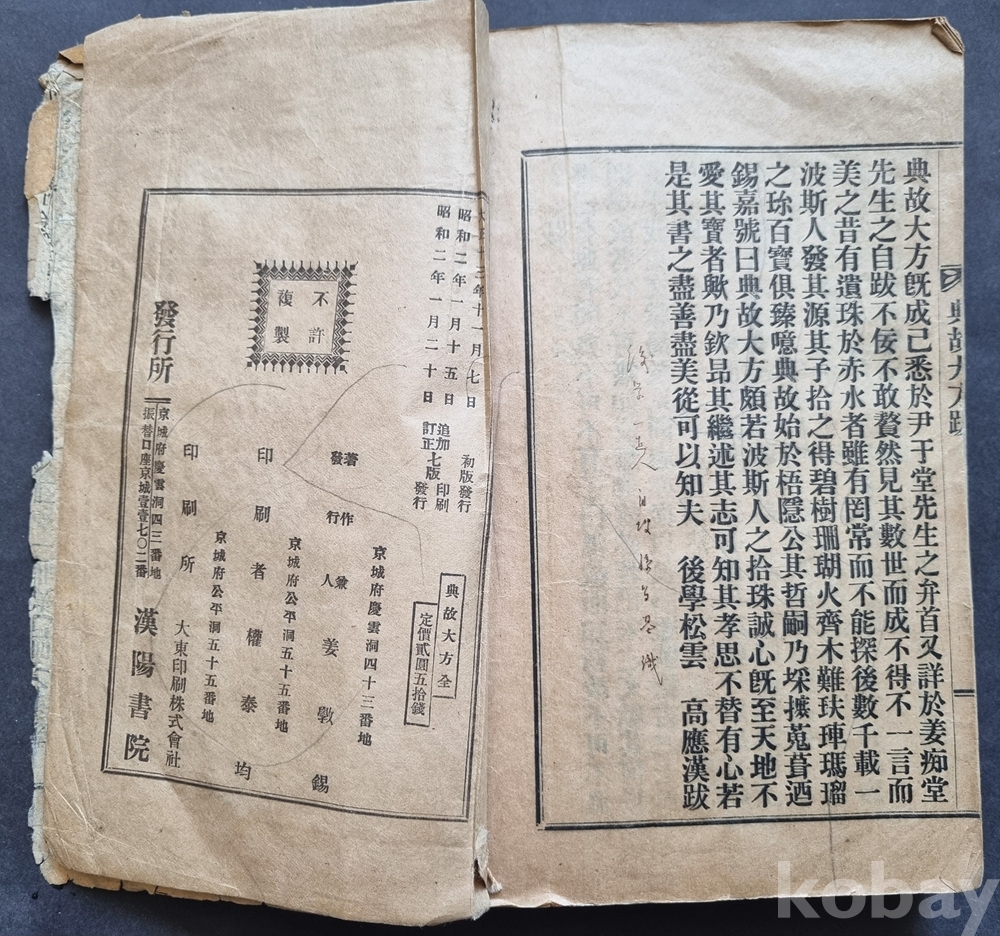 典故大方跋
典故大方旣成已悉於尹于堂先生之弁首又詳於姜痴堂
先生之自跋不佞不敢贅然見其數世而成不得不一言而
美之昔有遺珠於赤水者雖有罔常而不能探後數千載一
波斯人發其源其子拾之得碧樹珊瑚火齊木難玞琿瑪瑠
之珎百寶俱臻噫典故始於梧隱公其哲嗣乃採摭蒐葺迺
錫嘉號曰典故大方頗若波斯人之拾珠誠心旣至天地不
愛其寶者歟乃欽昻其繼述其志可知其孝思不替有心若
是其書之盡善盡美從可以知夫 後學松雲 高應漢跋
年十一月七日 初版發行
昭和二年一月十五日 追加訂正七版印刷
昭和二年一月二十日 發行
不許複製
典故大方全
定價貳圓五拾錢
京城府慶雲洞四十三番地
著作兼發行人 姜斅錫
京城府公平洞五十五番地
印刷者 權泰均
京城府公平洞五十五番地
印刷所 大東印刷株式會社
發行所
京城府慶雲洞四三番地
振替口座京城壹壹七〇二番
漢陽書院
kobay